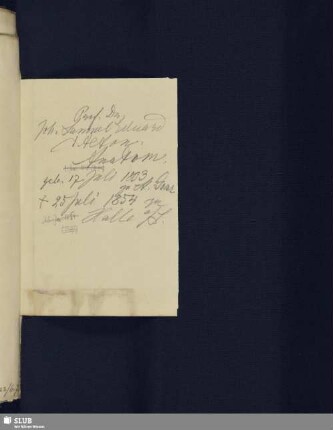 Prof. Dr.
Joh. Samuel Eduard
d'Alton.
Anatom.
geb. 17 Juli 1803
zu St. Goar
+ 25 Juli 1854 zu
Halle a/S.
SLUB